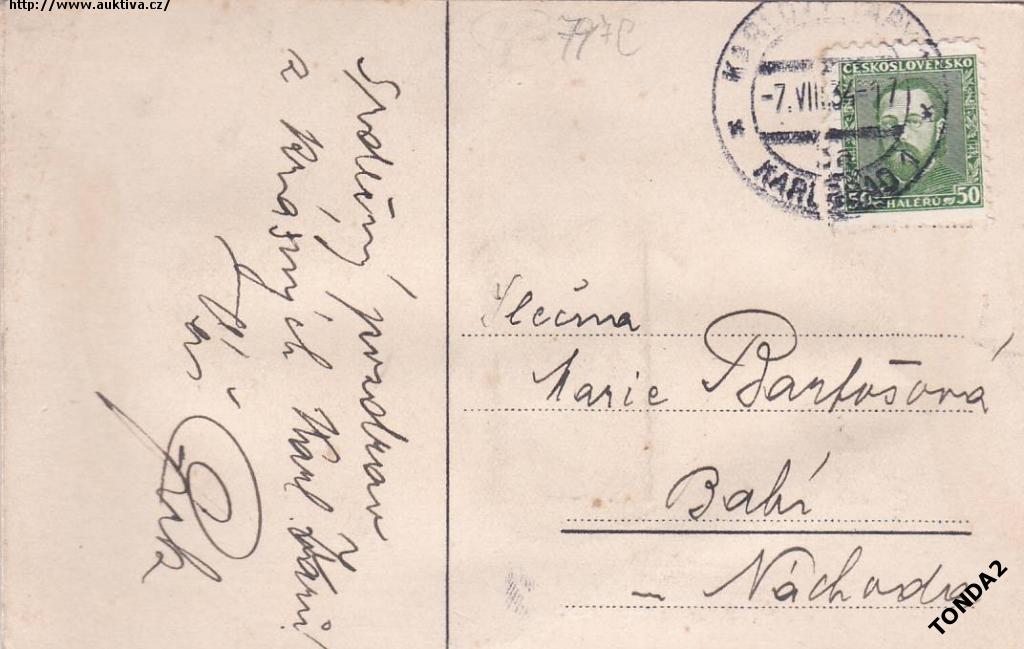 http://www.auktiva.cz/
797C
KARLOVY VARY 1
-7.VIII.34-17
KARLSBAD 1
ČESKOSLOVENSKO
50 HALÉŘŮ 50
Srdečný pozdrav
z krásných Karl. Varů
Vás
Slečna
Marie Bartošová
Babí
– Náchoda
TONDA2